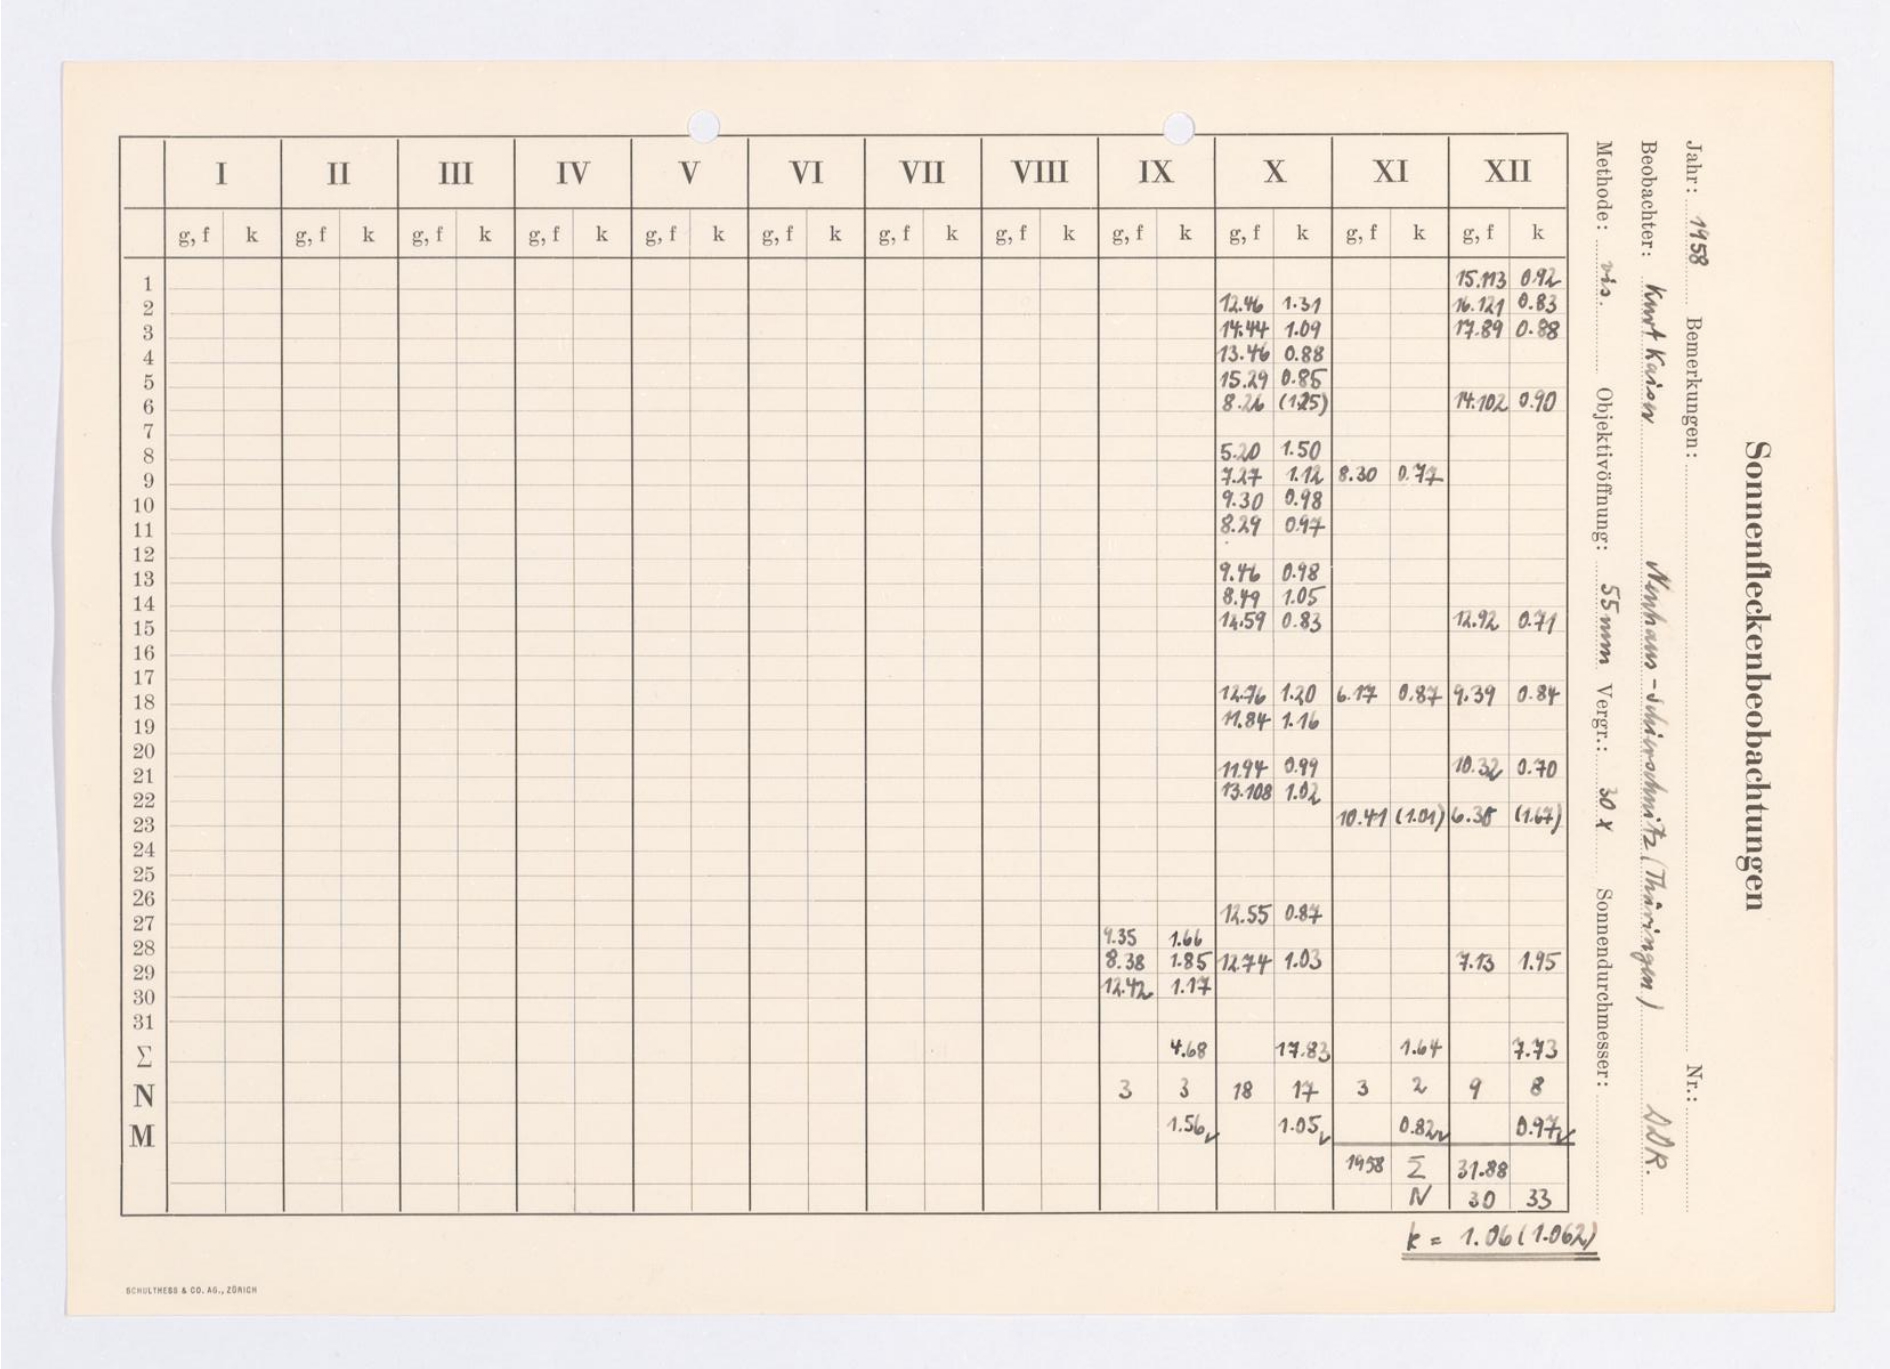 Sonnenfleckenbeobachtungen
Jahr: 1958 Bemerkungen: Nr.:
Beobachter: Kurt Kaiser (Thüringen) DDR.
Methode: vis. Objektivöffnung: 55 mm Vergr.: 30 x Sonnendurchmesser:
I II III IV V VI VII VIII IX X XI XII
g, f k g, f k g, f k g, f k g, f k g, f k g, f k g, f k g, f k g, f k g, f k g, f k
1 15.113 0.92
2 12.46 1.31 16.121 0.83
3 14.44 1.09 17.89 0.88
4 13.46 0.88
5 15.29 0.85
6 8.26 (1.25) 14.102 0.90
7
8 5.20 1.50
9 7.27 1.12 8.30 0.77
10 9.30 0.98
11 8.29 0.97
12
13 9.46 0.98
14 8.49 1.05
15 14.59 0.83 12.92 0.71
16
17
18 12.76 1.20 6.17 0.87 9.39 0.84
19 11.84 1.16
20
21 11.94 0.99 10.32 0.70
22 13.108 1.02
23 10.41 (1.01) 6.38 (1.67)
24
25
26
27 12.55 0.87
28 9.35 1.66
29 8.38 1.85 12.74 1.03 7.13 1.95
30 12.42 1.17
31
Σ 4.68 17.83 1.64 7.73
N 3 3 18 17 3 2 9 8
M 1.56 1.05 0.82 0.97
1958 Σ 31.88
N 30 33
k = 1.06 (1.062)
SCHULTHESS & CO. AG., ZÜRICH